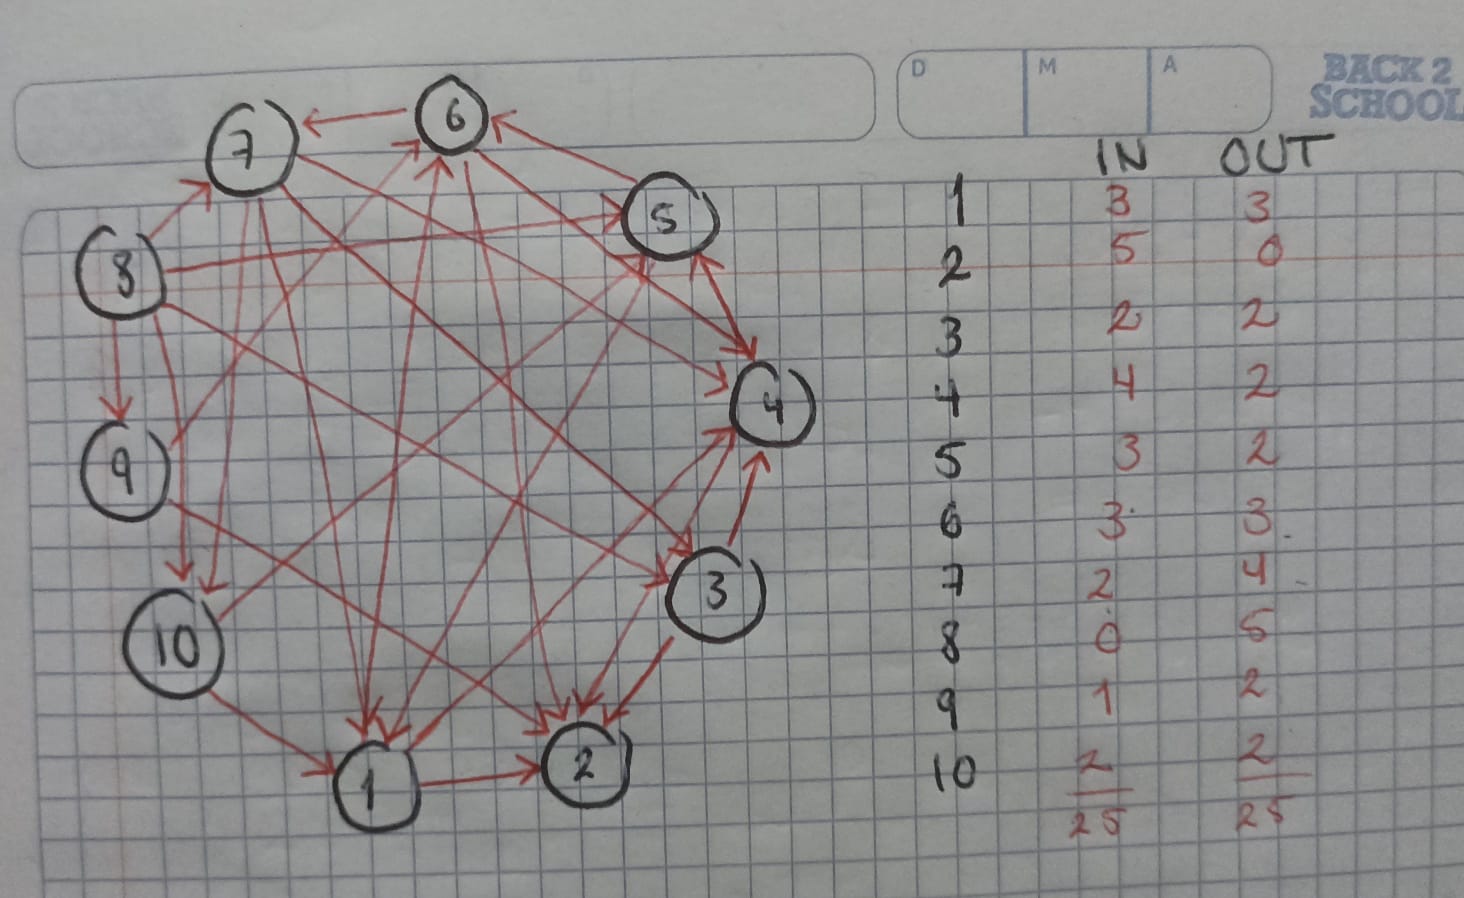 D M A
BACK 2
SCHOOL
6
7
5
8
4
9
3
10
2
1
IN OUT
1 3 3
2 5 0
3 2 2
4 4 2
5 3 2
6 3 3
7 2 4
8 0 5
9 1 2
10 2 2
25 25